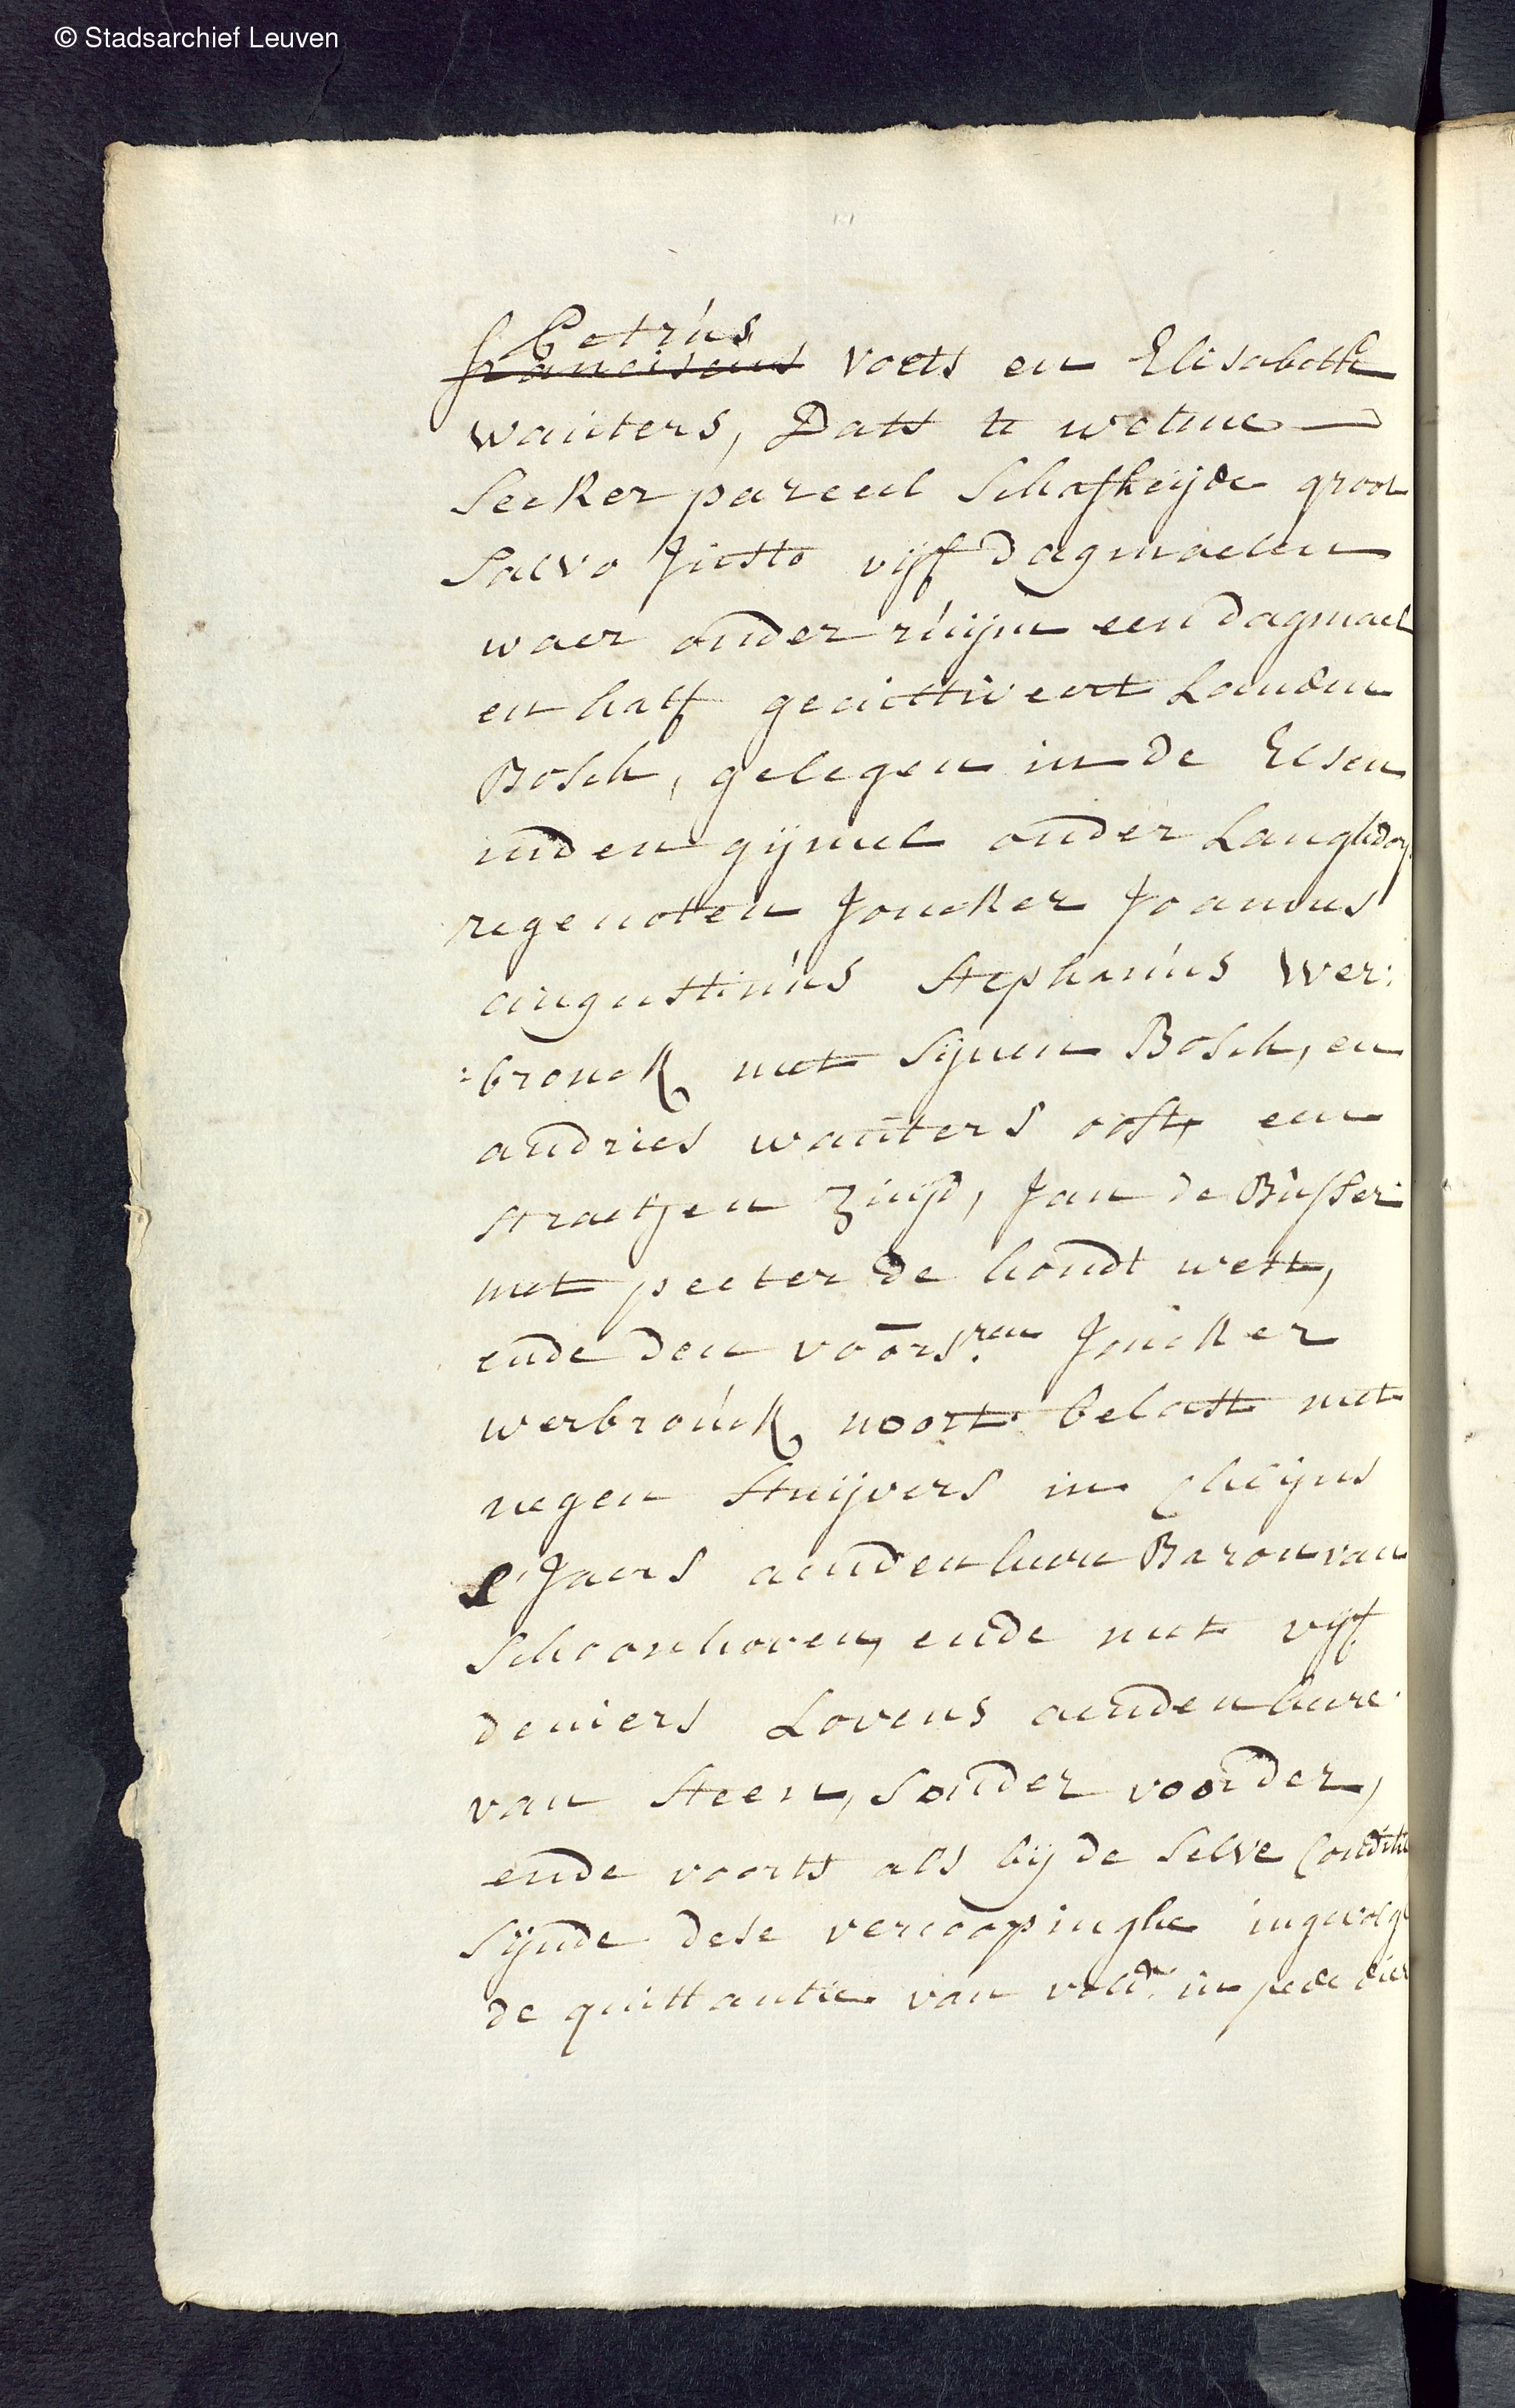 © Stadsarchief Leuven
Petrus
franciscus voets en Elisabeth
wauters, Datt te wetene
seeker parceel Schafheijde groot
salvo Justo vijff dagmaelen
waer onder ruijm een dagmael
en half gecultiveert Landen
Bosch, gelegen in de Elsen
inden gijmel onder Langhdorp
regenoten Joncker Joannes
augustinus Stephanus Wer:
:bronck met sijnen Bosch, en
andries wauters oost, een
straetjen Zuijd, Jan de Busser
met peeter de hondt west,
ende den voors.ren Joncker
werbrouck noort belast met
negen stuijvers in Cheijns
s'Jaers aenden heere Baron van
Schoonhoven, ende met vijf
deniers Lovens aenden heere
van Steen, sonder voorder,
ende voorts als bij de selve Conditie
sijnde dese vercoopinghe ingevolge
de quittantie van in pede dier